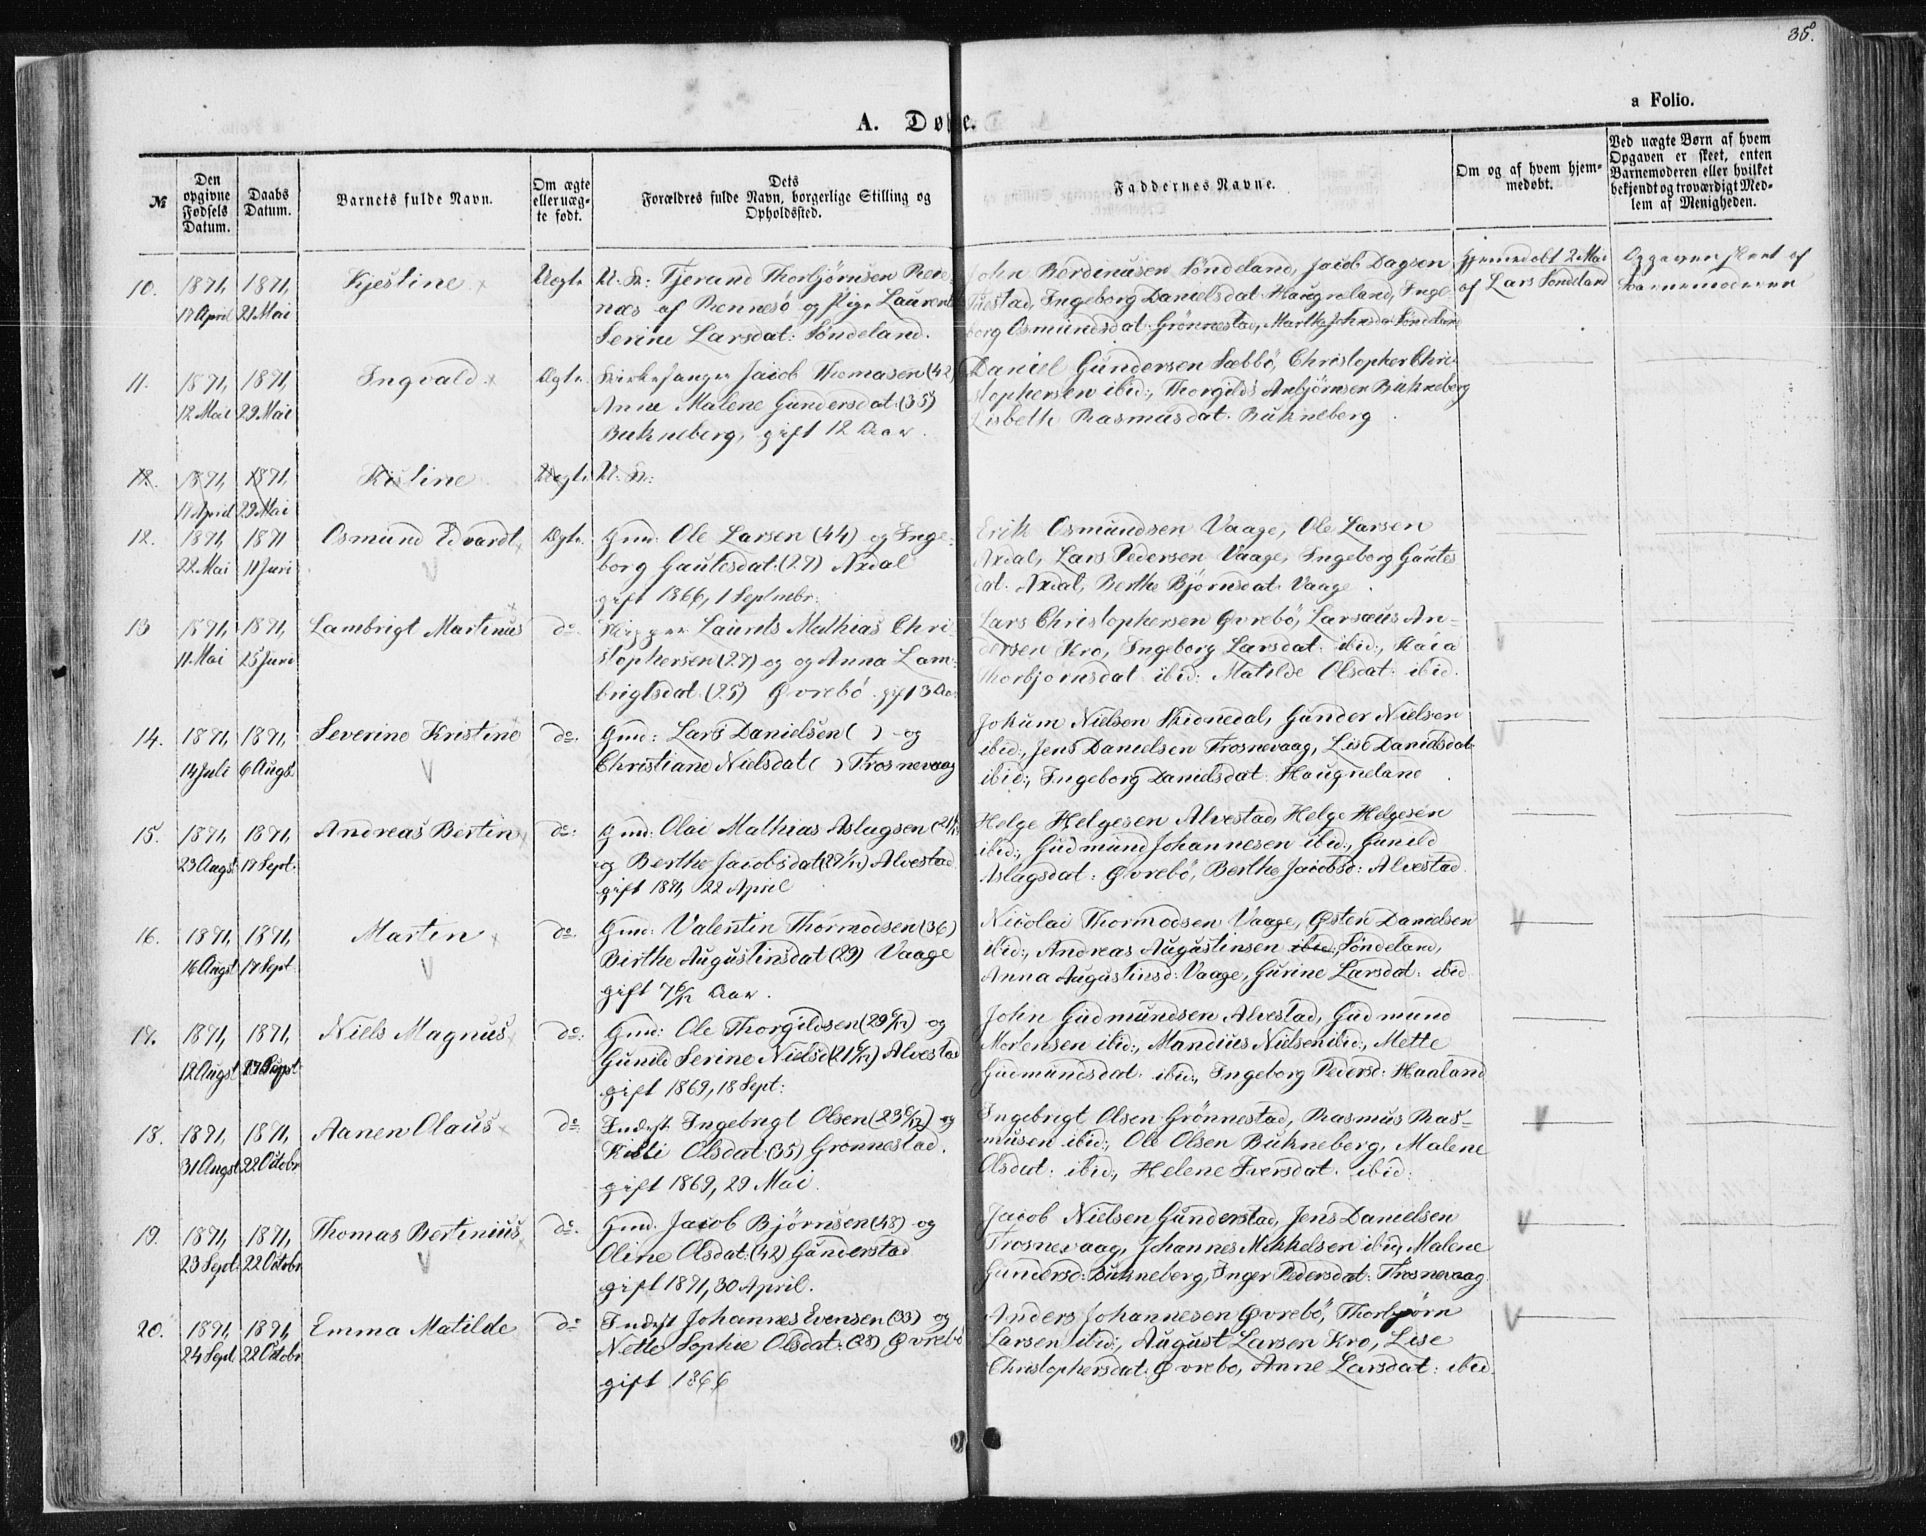 38.
a Folio.
A. Døbte.
№
Den opgivne Fødsels Datum.
Daabs Datum.
Barnets fulde Navn.
Om ægte eller uægte født.
Dets Forældres fulde Navn, borgerlige Stilling og Opholdssted.
Faddernes Navne.
Om og af hvem hjemmedøbt.
Ved uægte Børn af hvem Opgaven er skeet, enten Barnemoderen eller hvilket bekjendt og troværdigt Medlem af Menigheden.
10. 1871, 17 April
1871, 21 Mai
Kjestine
Uegte
U. K: Tjerand Thorbjørnsen
næs af Rennesø og Pige Laurentse
Serine Larsdat: Søndeland.
John Berdinusen Søndeland, Jacob Dagsen
Ingeborg Danielsdat Haugneland, Inge-
borg Osmundsdat Grønnestad, Marthe Johnsdat Søndeland
Hjemmedøbt 2 Mai
af Lars Søndeland
Opgaven skeet af
Barnemoderen
11. 1871, 12 Mai
1871, 29 Mai
Ingvald
Ægte
Kirkesanger Jacob Thomasen (42)
Anne Malene Gundersdat (35)
Bukneberg, gift 12 Aar.
Daniel Gundersen Sæbbø, Christopher Chri-
stophersen ibid:, Thorgilds Anbjørnsen Bukneberg
Lisbeth Rasmusdat. Bukneberg.
12. 1871, 17 April
1871, 29 Mai
Kistine
Uegte
U. K:
12. 1871, 22 Mai
1871 11 Juni
Osmund Edvardt
Ægte
Gmd: Ole Larsen (44) og Inge-
borg Gautesdat: (27) Axdal
gift 1866, 1 Septmbr.
Erik Osmundsen Vaage, Ole Larsen
Axdal, Lars Pedersen Vaage, Ingeborg Gautes
dat. Axdal, Berthe Bjørnsdat Vaage.
13 1871, 11 Mai
1871, 25 Juni
Lambrigt Martinus
do.
Skipper Laurits Mathias Chri-
stophersen (27) og og Anna Lam-
brigtsdat (25) Øvrebø gift 3 Aar
Lars Christophersen Øvrebø, Larsæus An-
dersen Kro, Ingeborg Larsdat. ibid:, Kaia
Thorbjørnsdat: ibid: Matilde Olsdat: ibid.
14. 1871, 14 Juli
1871, 6 Augs.
Severine Kristine
do.
Gmd: Lars Danielsen ( ) og
Christiane Nielsdat ( ) Frosnevaag
Jokum Nielsen Skidnedal, Gunder Nielsen
ibid:, Jens Danielsen Frosnevaag, Lise Danielsdat
ibid:, Ingeborg Danielsdat: Haugneland.
15. 1871, 23 Augst
1871, 17 Sept.
Andreas Bertin
do:
Gmd: Olai Mathias Aslagsen
og Berthe Jacobsdat Alvestad
gift 1871, 22 April
Helge Helgesen Alvestad, Helge Helgesen
ibid:, Gudmund Johannesen ibid:, Gunild
Aslagsdat: Øvrebø, Berthe Jacobsd: Alvestad.
16. 1871, 16 Augst
1871, 17 Sept.
Martin
do.
Gmd: Valentin Thormodsen (36)
Birthe Augustinsdat (29) Vaage
gift 7 6/12 Aar.
Nicolai Thormodsen Vaage, Østen Danielsen
ibid:, Andreas Augustinsen ibid:, Søndeland,
Anna Augustinsd: Vaage, Gurine Larsdat: ibid.
17. 1871, 12 Augst
1871, 17 Sept.
Niels Magnus
do:
Gmd: Ole Thorgildsen og
Gunild Serine Nielsd: Alvestad
gift 1869, 18 Sept:
John Gudmundsen Alvestad, Gudmund
Mortensen ibid:, Mandius Nielsen ibid:, Mette
Gudmundsdat: ibid:, Ingeborg Pedersd: Haaland
18. 1871, 31 Augst
1871, 22 Octobr
Aanen Olaus
do:
Inderst Ingebrigt Olsen og
Olsdat: (35) Grønnestad.
gift 1869, 29 Mai.
Ingebrigt Olsen Grønnestad, Rasmus Ras-
musen ibid:, Ole Olsen Bukneberg, Malene
Olsdat: ibid:, Helene Iversdat. ibid:
19. 1871, 23 Sept:
1871, 22 Octobr
Thomas Bertinius
do.
Gmd. Jacob Bjørnsen (48) og
Oline Olsdat: (42) Gunderstad
gift 1871, 30 April.
Jacob Nielsen Gunderstad, Jens Danielsen
Frosnevaag, Johannes Mikkelsen ibid, Malene
Gundersd: Bukneberg, Inger Pedersdat: Frosnevaag
20. 1871, 24 Sept
1871, 22 Octobr
Emma Matilde
do
Inderst Johannes Evensen (33) og
Nette Sophie Olsdat: (28) Øvrebø
gift 1866
Anders Johannesen Øvrebø, Thorbjørn
Larsen ibid:, August Larsen Kro, Lise
Christophersdat. Øvrebø, Anne Larsdat: ibid.